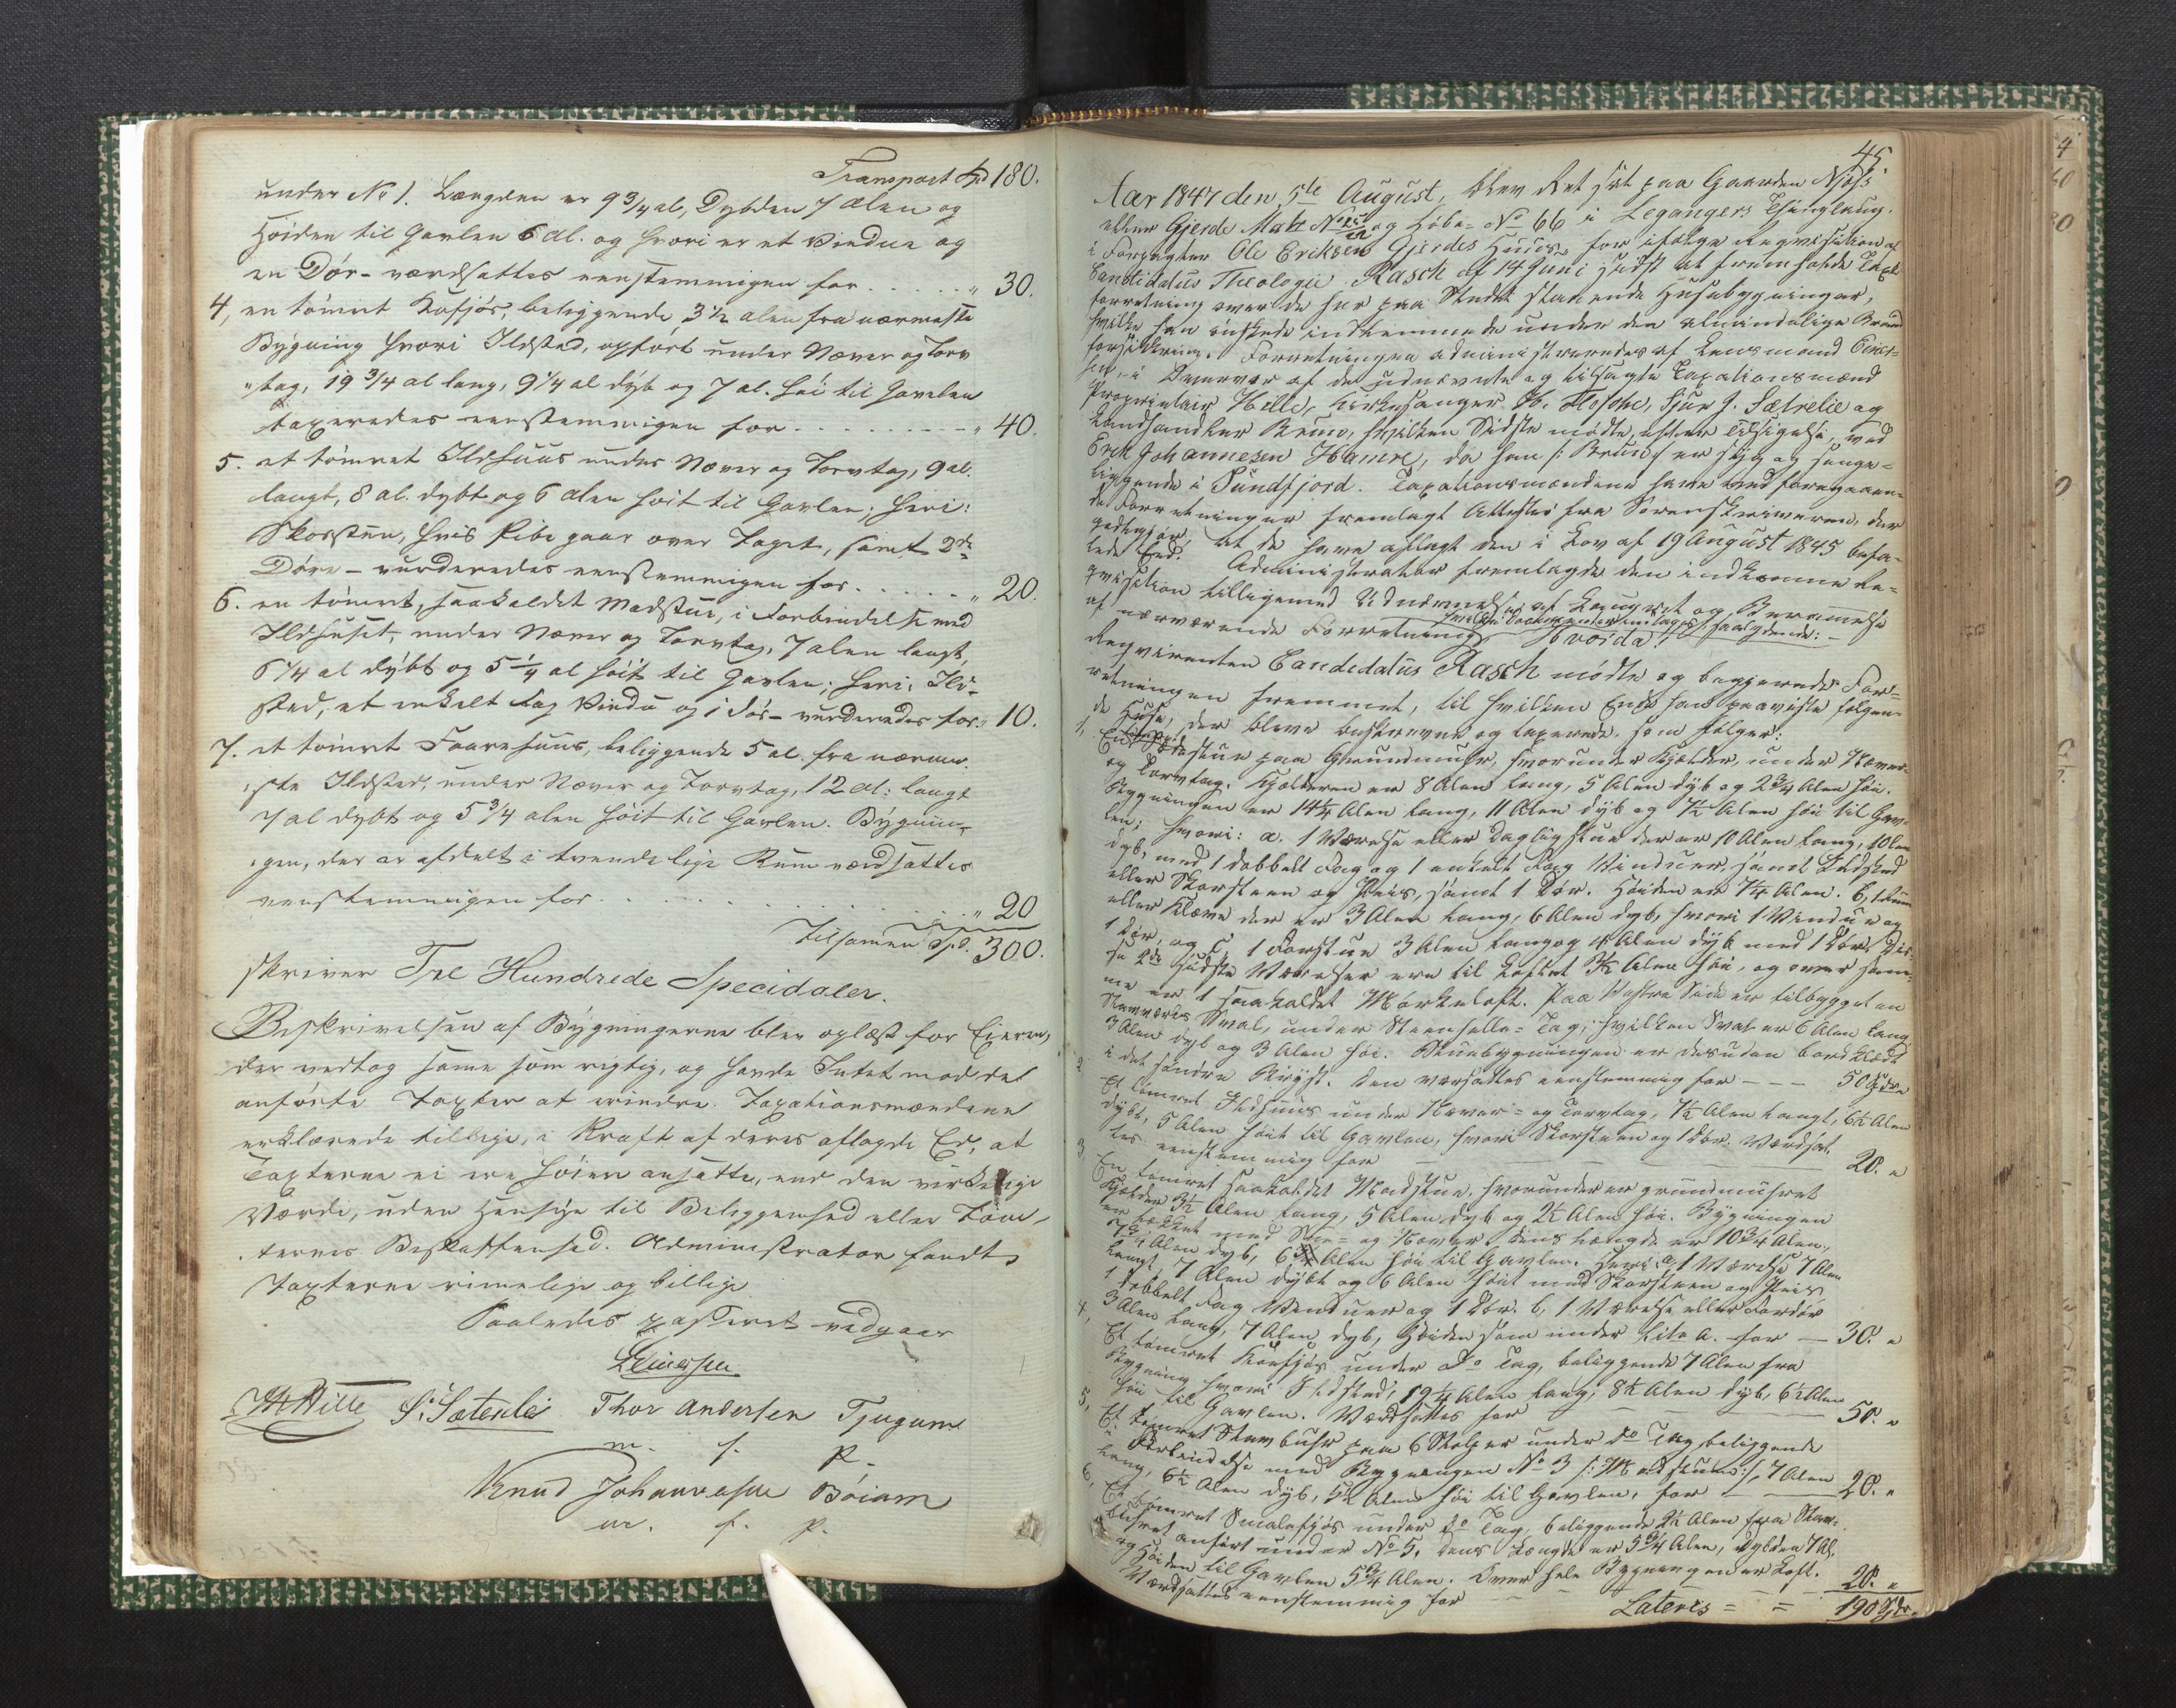 Transport Spd 180.
under No 1. Længden er 9 3/4 al, Dybden 7 Alen og
Høiden til Gavlen 6 Al. og hvori er et Vindue og
en Dør - værdsattes eenstemmigen for . . . . . " 30.
4, en tømret Kofjøs, beliggende 3 1/2 alen fra nærmeste
Bygning hvori Ildsted, opført under Næver og Torv
"tag, 19 3/4 al lang, 9 1/4 al dyb og 7 al. høi til Gavelen
taxeredes eenstemmigen for . . . . . " 40.
5. et tømret Ildhuus under Næver og Torvtag, 9 al.
langt, 8 al. dybt og 6 alen høit til Gavlen; heri:
Skorsteen, hvis Pibe gaar over Taget, samt 2de
Døre - vurderedes eenstemmigen for . . . . . " 20.
6. en tømret, saakaldet Madstue, i Forbindelse med
Ildhuset, under Næver og Torvtag, 7 alen langt,
6 1/4 al dybt og 5 1/4 al høit til Gavlen; heri: Ild-
sted, et enkelt Fag Vindu og 1 Dør - vurderedes for " 10.
7. et tømret Faarehuus, beliggende 5 al. fra nærme-
ste Ildsted, under Næver og Torvtag, 12 al: langt
7 al dybt og 5 3/4 alen høit til Gavlen. Bygnin-
gen, der er afdelt i tvende lige Rum værdsattes
eenstemmigen for . . . . . " 20
tilsamen Spd. 300.
skriver Tre Hundrede Specidaler.
Beskrivelsen af Bygningerne blev oplæst for Eieren,
der vedtog samme som rigtig, og havde Intet mod de
anførte Taxter at erindre. Taxationsmændene
erklærede tillige, i Kraft af deres aflagde Ed, at
Taxterne ei ere høiere ansatte, end den virkelige
Værdi, uden Hensyn til Beliggenhed eller Tom-
ternes Beskaffenhed. Administrator fandt
Taxterne rimelige og billige
Saaledes passeret vedgaaer
Einersen
Hille S: Sætrelie Thor Andersen Tjugum
m. f. p.
Knud Johannesen Bøium
m. f. p.
45
Aar 1847 den 5te August, blev Ret sat paa Gaarden Njøs
eller Gjerde Matr No og Løbe-No 66 i Legangers Thinglaug.
i Forpagter Ole Eriksen Gjerdes Huus, for ifølge Reqvisition af
Candidatus Theologie Rasch af 14 Juni sidst at fremholde Taxt-
forretning over de her paa Stedet staaende Huusebygninger,
hvilke han ønskede indlemmede under den almindelige Brand-
forsikkring. Forretningen administreredes af Lensmand Einer-
sen, i Overvær af de udnævnte og tilsagte Taxationsmænd
Proprietair Hille, Kirkesanger Flohohe, Sjur J. Sætrelie og
Landhandler Bruno, hvilken Sidste mødte, efter Tilsigelse, ved
Erik Johannesen Hamre, da han /: Bruno :/ er syg og senge-
liggende i Sundfjord. Taxationsmændene have ved foregaaen-
de Forretninger fremlagt Attester fra Sorenskriveren, der
godtgjør, at de have aflagt den i Lov af 19 August 1845 befa-
lede Eed. Administrator fremlagde den indkomne Re-
qvisition tilligemed Udnævnelse af Lauget og Berammelse
af nærværende Forretning hvilke Documenter indtages saalydende: -
(voida)
Reqvirenten Candidatus Rasch mødte og begjærede For-
retningen fremmet, til hvilken Ende han paaviste følgen-
de Huse, der bleve beskrevne og taxerede som følger:
1, En Stue paa Grundmuur, hvorunder Kjælder, under Næver-
og Torvtag. Kjelderen er 8 Alen lang, 5 Alen dyb og 2 3/4 Alen høi.
Bygningen er 14 1/4 Alen lang, 11 Alen dyb og 7 1/2 Alen høi til Gav-
len; hvori: a. 1 Værelse eller Dagligstue der er 10 Alen lang, 10 Alen
dyb, med 1 dobbelt Fag og 1 enkelt Fag Vinduer, samt Ildsted
eller Skorsteen og Peis, samt 1 Dør. Høiden er 7 1/4 Alen. b, 1 Rum
eller Kleve der er 3 Alen lang, 6 Alen dyb, hvori 1 Vindue og
1 Dør, og c, 1 Forstue 3 Alen lang og 4 Alen dyb med 1 Dør. Dis-
se 2de sidste Værelser ere til Loftet 3 1/2 Alen høi, og over sam-
me er 1 saakaldet Mørkeloft. Paa Vestre Side er tilbygget en
Stavværks Sval, under Steenhelle-Tag; hvilken Sval er 6 Alen lang,
3 Alen dyb og 3 Alen høi. Stuebygningen er desuden bordklædt
i det søndre Bryst. Den værdsattes eenstemmig for - - - 50 Spdr
2. Et tømret Ildhuus under Næver- og Torvtag, 7 1/2 Alen langt, 6 1/2 Alen
dybt, 5 Alen høit til Gavlen, hvori Skorsteen og 1 Dør. Værdsat-
tes eenstemmig for 20. "
3. En tømret saakaldet Madstue, hvorunder er grundmuuret
Kjelder 3 1/2 Alen lang, 5 Alen dyb og 2 1/2 Alen høi. Bygningen
er tækket med Steen- og Næver, dens Længde er 10 3/4 Alen,
7 3/4 Alen dyb, 6 Alen høi til Gavlen. Heri: a, 1 Værelse 7 Alen
langt, 7 Alen dybt og 6 Alen høit med Skorsteen og Peis
1 dobbelt Fag Vinduer og 1 Dør. b, 1 Værelse eller Fordør
3 Alen lang, 7 Alen dyb, Høiden som under Litr a. for - 30. "
4, Et tømret Koefjøs under do Tag, beliggende 7 Alen fra
Bygning hvori Ildsted, 19 1/4 Alen lang, 8 1/2 Alen dyb, 6 1/2 Alen
høi til Gavlen. Værdsattes for 50. "
5, Et tømret Stavbuhr paa 6 Stolper under do Tag beliggende
i Forbindelse med Bygningen No 3 /: Madstuen :/, 7 Alen
lang, 6 1/2 Alen dyb, 5 1/2 Alen høi til Gavlen, for 20. "
6, Et tømret Smalefjøs under do Tag, beliggende 2 1/2 Alen fra Stav-
buhret anført under No 5, dens Længde er 5 3/4 Alen, Dybden 7 Al.
og Høiden til Gavlen 5 3/4 Alen. Over hele Bygningen er Loft.
Værdsattes eenstemmig for 20. "
Lateris = = 190 Spdr.